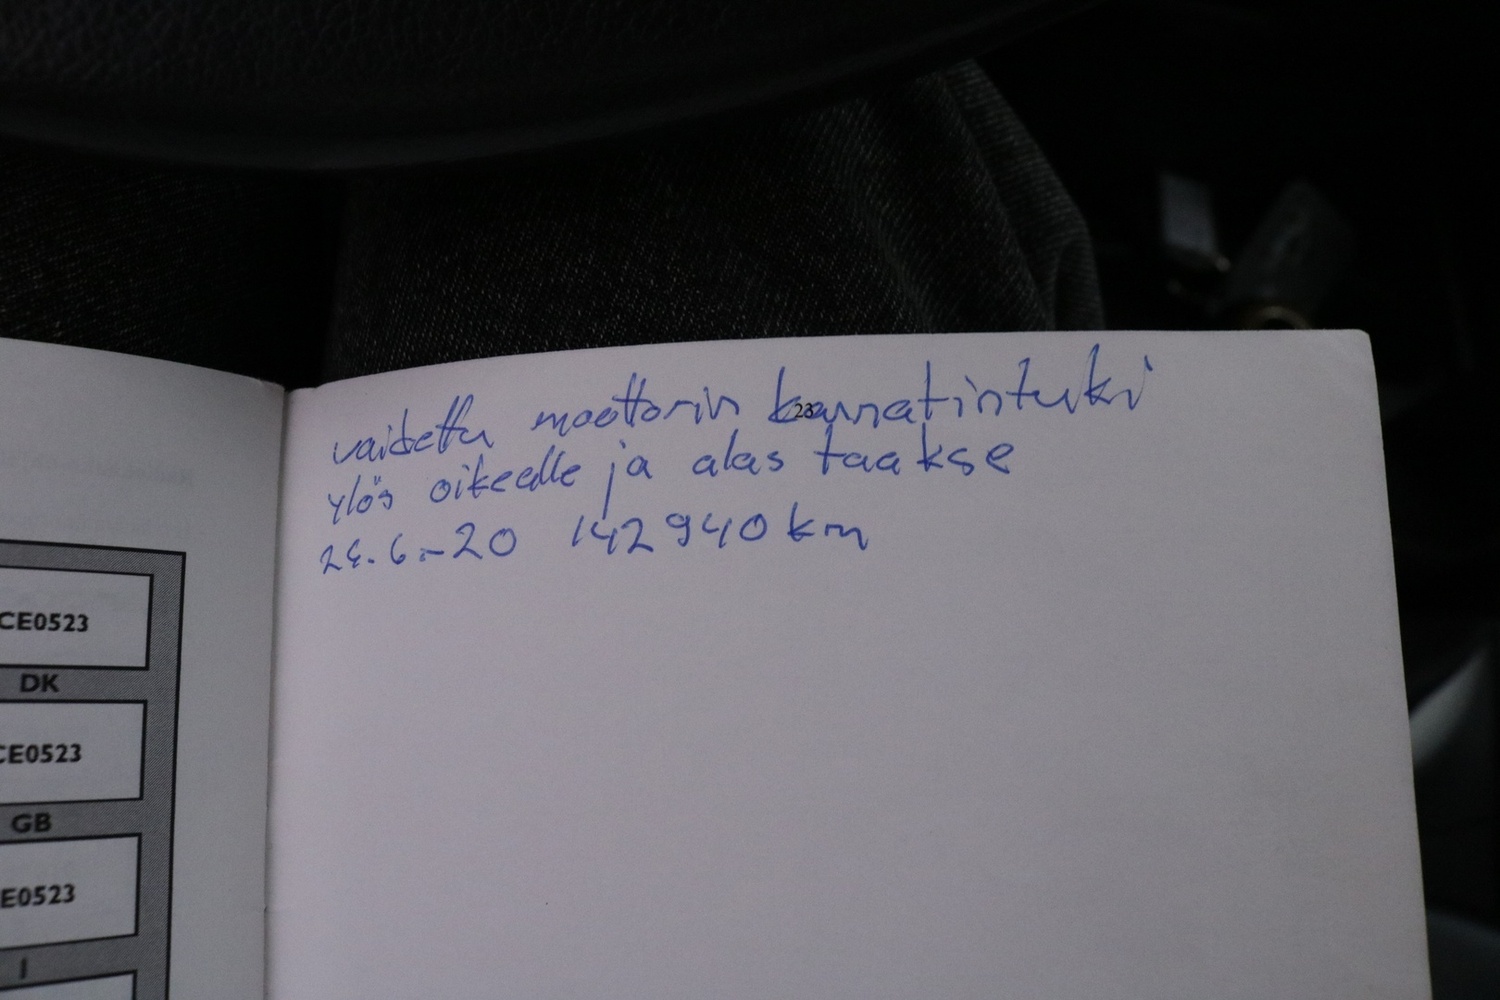 CE0523
DK
CE0523
GB
E0523
I
vaidettu moottorin kannatintuki
ylös oikealle ja alas taakse
24.6.-20 142940 km
23